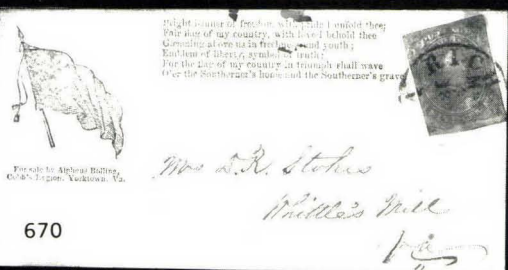 Bright Banner of freedom, with pride I unfold thee;
Fair flag of my country, with love I behold thee
Gleaming above us in freshness and youth;
Emblem of liberty, symbol of truth;
For the flag of my country in triumph shall wave
O'er the Southerner's home and the Southerner's grave
RIC
For sale by Alpheus Bolling,
Cobb's Legion, Yorktown, Va.
Mrs D.R. Stokes
Whittle's Mill
Va
670